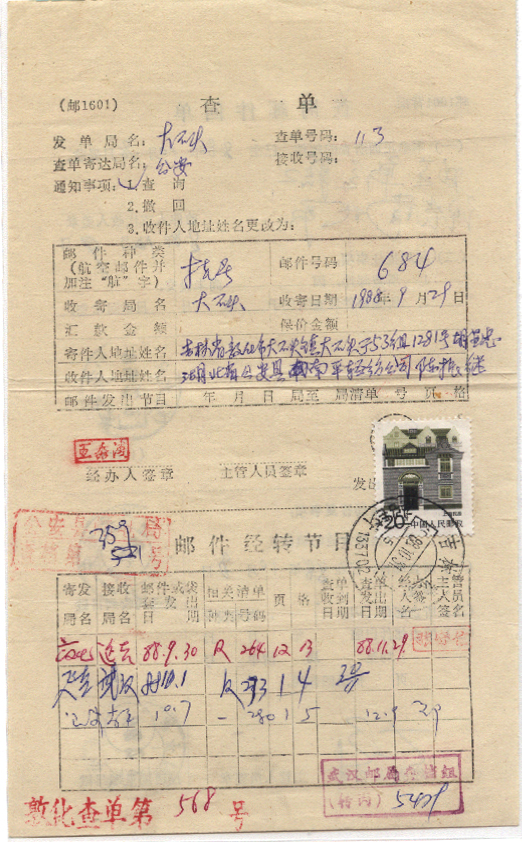 (邮1601) 查 单
发单局名: 大石头 查单号码: 113
查单寄达局名: 公安 接收号码:
通知事项: 1.查 询
2.撤 回
3.收件人地址姓名更改为:
邮件种类(航空邮件并加注“航”字) 挂号 邮件号码 684
收寄局名 大石头 收寄日期 1988年9月29日
汇款金额 保价金额
寄件人地址姓名 吉林省敦化市大石头镇
收件人地址姓名 湖北省公安县南平轻纺公司
邮件发出节日 年 月 日 局至 局清单 号 页 格
经办人签章 主管人员签章 发出
20分
中国人民邮政
359
521 号
邮件经转节日
寄发局名 接收局名 邮件或袋套发出日期 相关清单种类 号码 页 格 查单收到日期 查单发出日期 经办人签名 主管人员签名
88.9.30 R 264 12 13 88.11.29
武汉 10.1 R 293 1 4
10.7 — 280 1 5 12.9
武汉邮局
(转内) 5429
敦化查单第 568 号